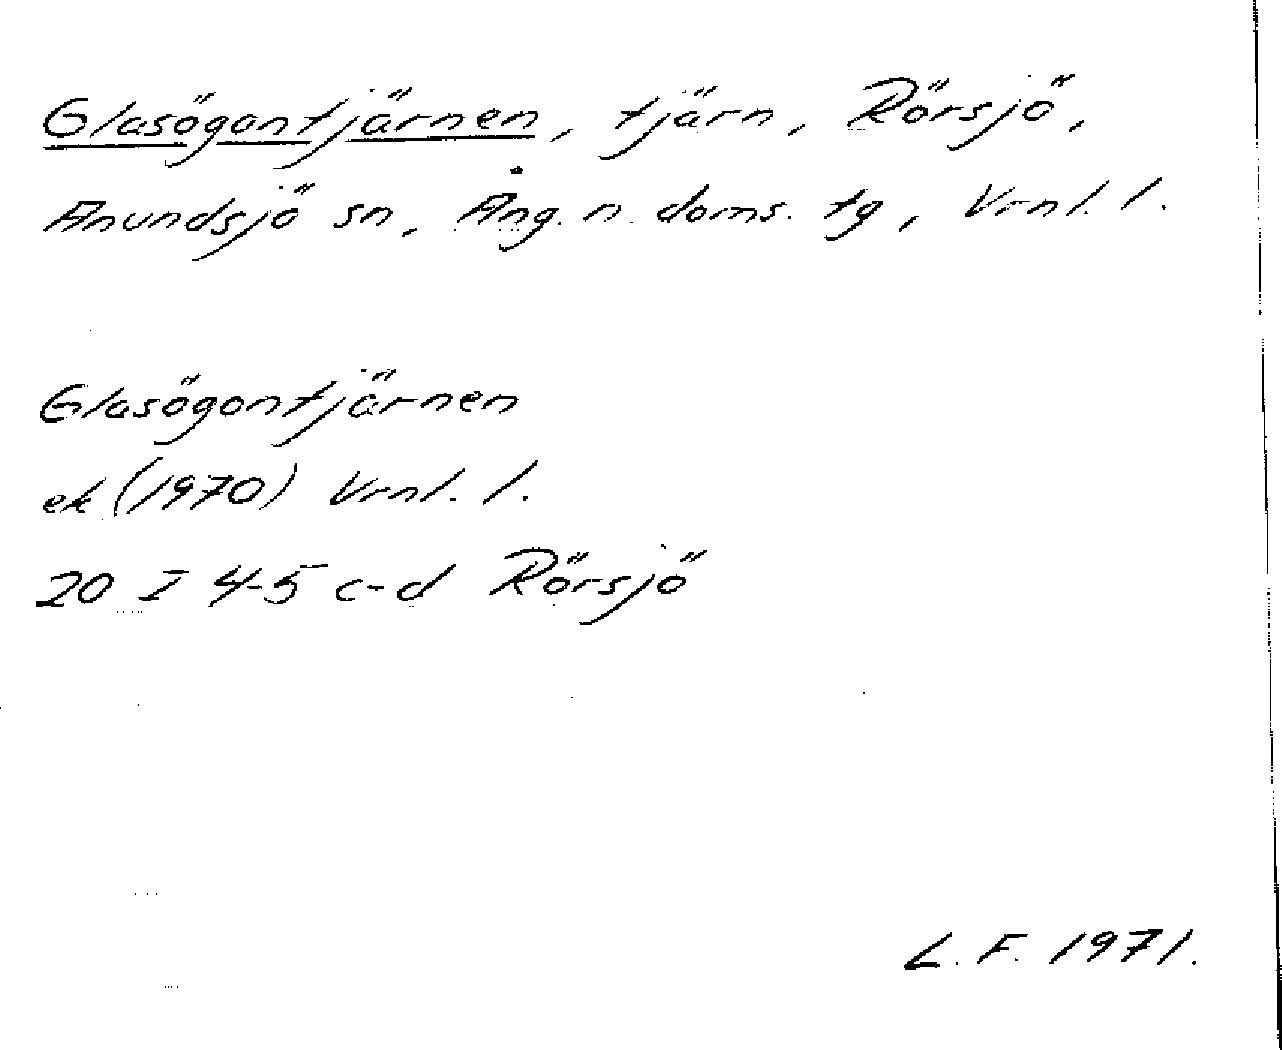 Glasögontjärnen, tjärn, Rörsjö,
Anundsjö sn, Ång. n. doms. tg, Vrnl. l.
Glasögontjärnen
ek (1970) Vrnl. l.
20 I 4-5 c-d Rörsjö
L. F. 1971.